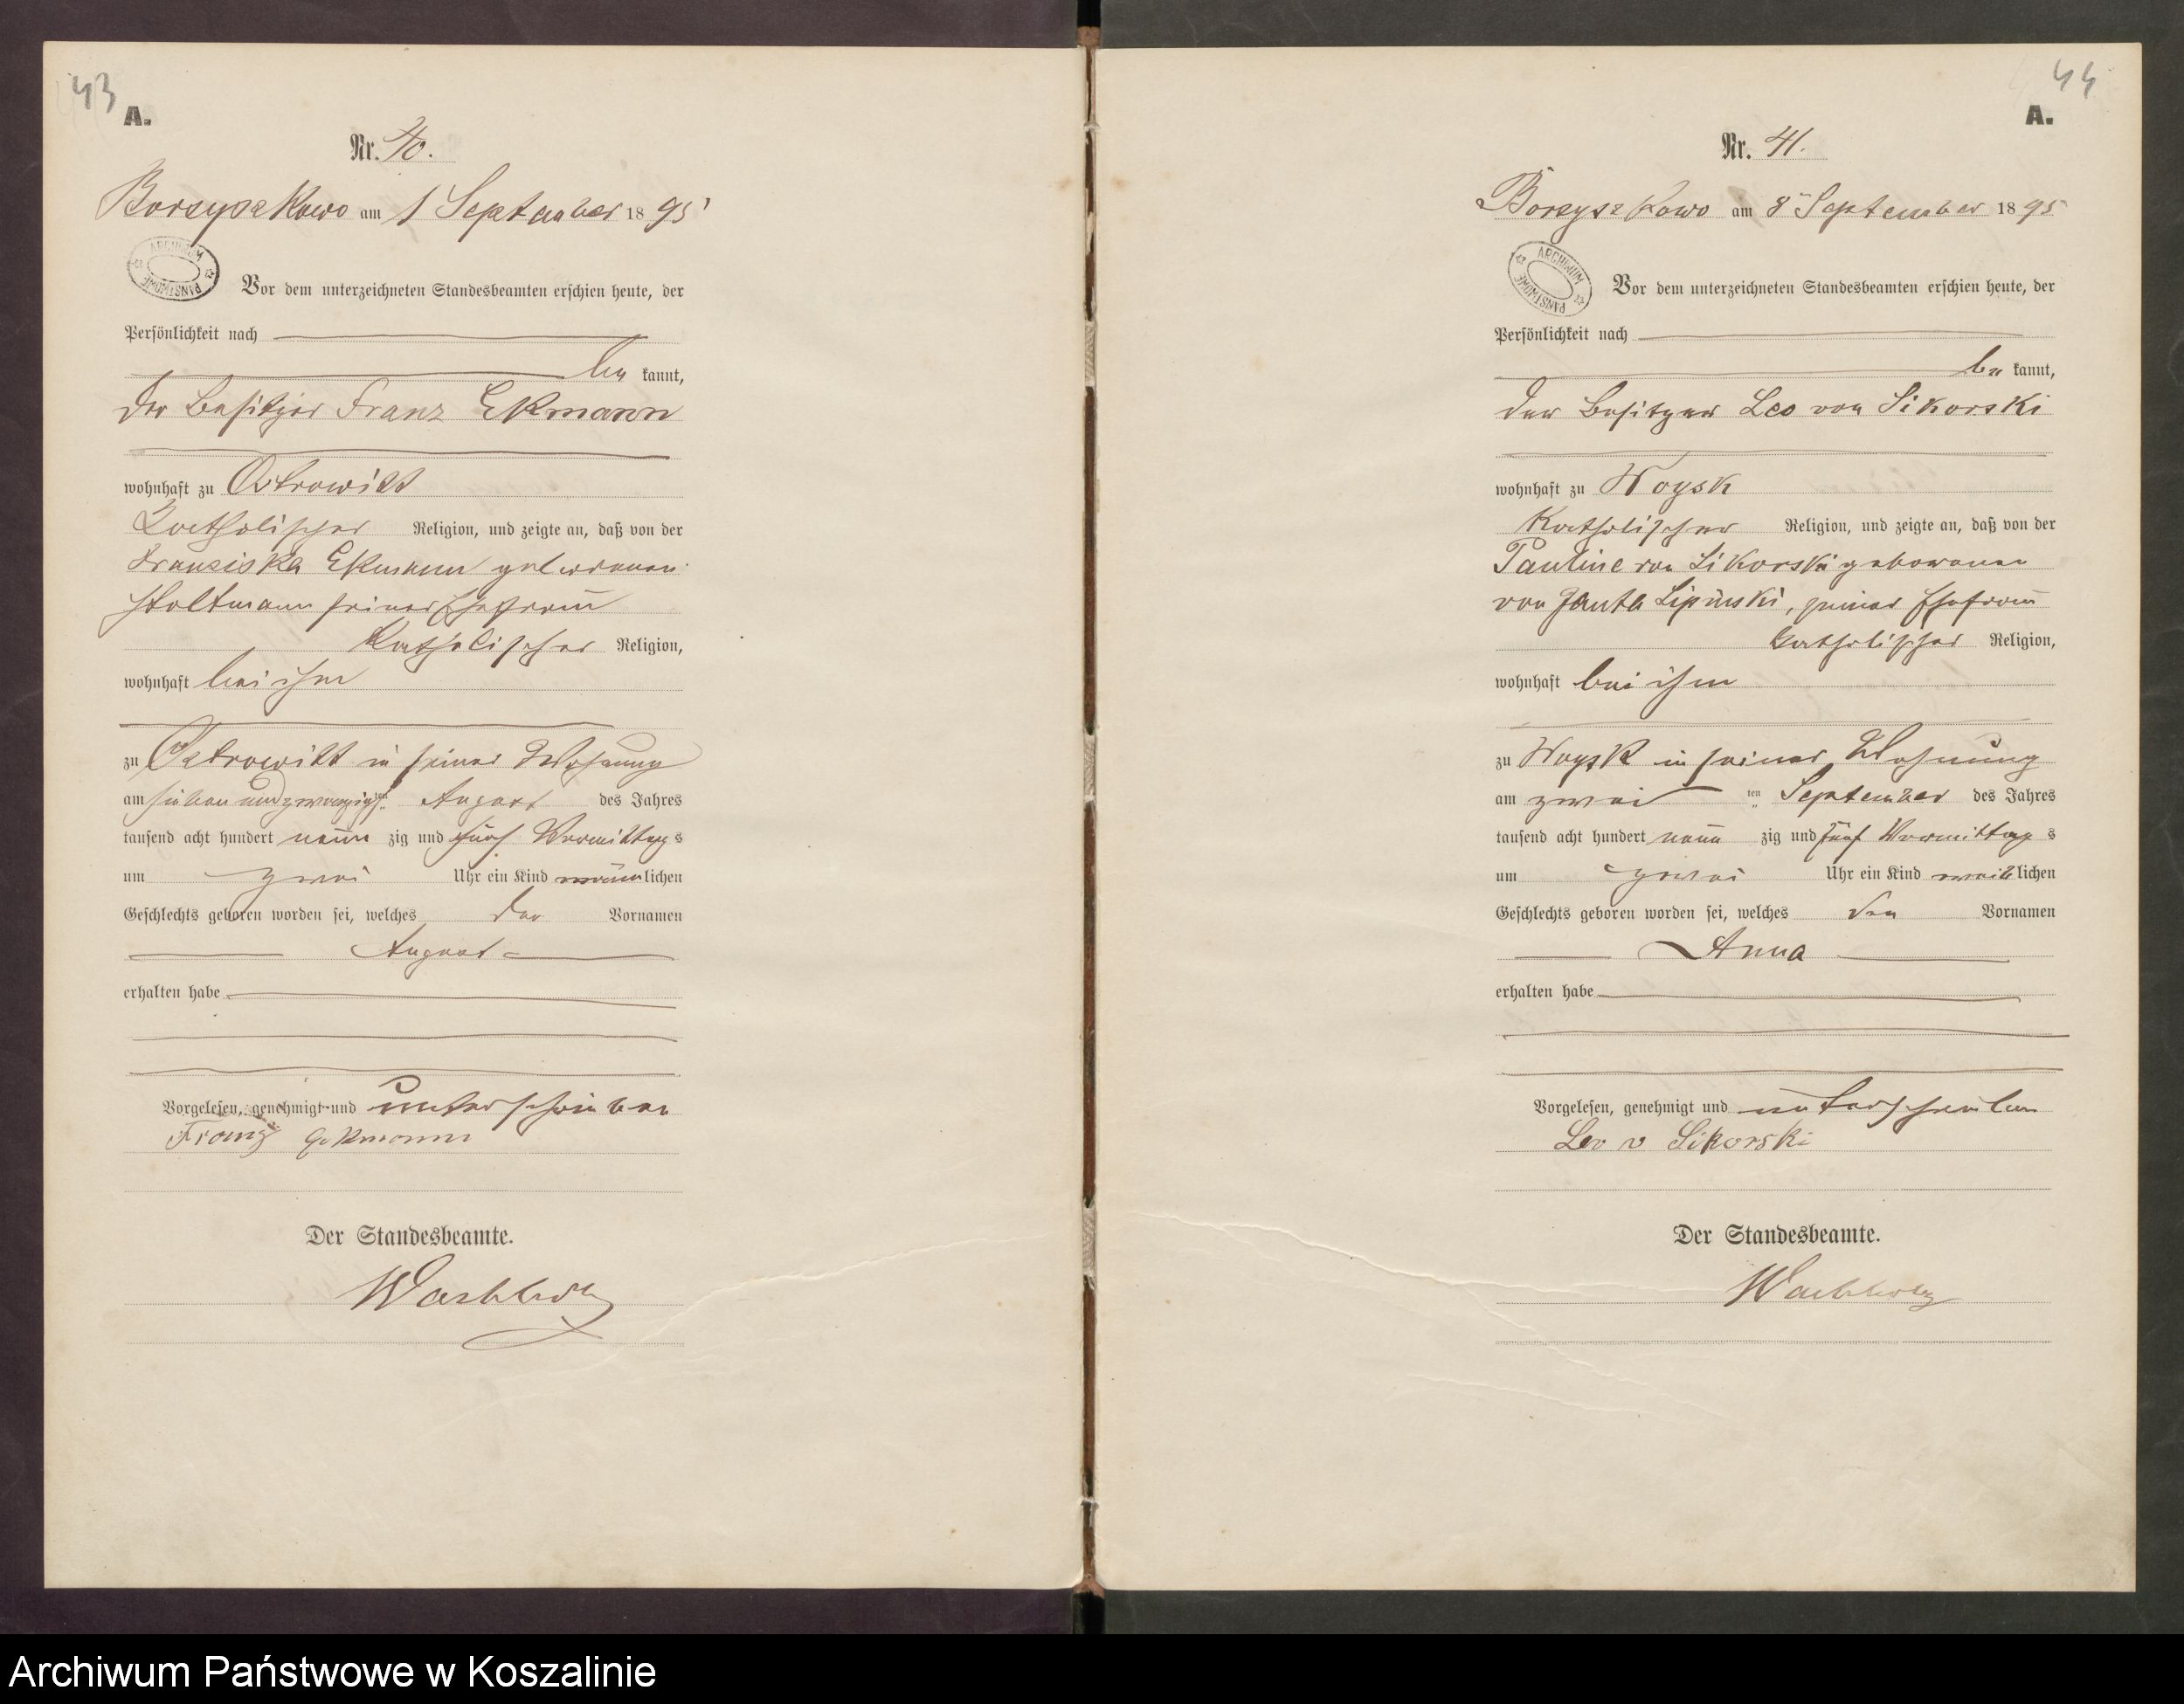 43
A.
Nr. 40.
Borzyszkowo am 1 September 1895
ARCHIWUM PAŃSTWOWE
Vor dem unterzeichneten Standesbeamten erschien heute, der
Persönlichkeit nach
be kannt,
der Besitzer Franz Ekmann
wohnhaft zu Ostrowitt
katholischer Religion, und zeigte an, daß von der
Franziska Ekmann geborenen
Holtmann seiner Ehefrau
katholischer Religion,
wohnhaft bei ihm
zu Ostrowitt in seiner Wohnung
am sieben und zwanzigsten August des Jahres
tausend acht hundert neun zig und fünf Vormittag s
um zwei Uhr ein Kind männlichen
Geschlechts geboren worden sei, welches den Vornamen
August
erhalten habe
Vorgelesen, genehmigt und unterschrieben
Franz Ekmann
Der Standesbeamte.
Wachholz
44
A.
Nr. 41.
Borzyszkowo am 8 September 1895
ARCHIWUM PAŃSTWOWE
Vor dem unterzeichneten Standesbeamten erschien heute, der
Persönlichkeit nach
be kannt,
der Besitzer Leo von Sikorski
wohnhaft zu Woysk
katholischer Religion, und zeigte an, daß von der
Pauline von Sikorski geborenen
von Janta Lipinski, seiner Ehefrau
katholischer Religion,
wohnhaft bei ihm
zu Woysk in seiner Wohnung
am zwei ten September des Jahres
tausend acht hundert neun zig und fünf Vormittag s
um zwei Uhr ein Kind weiblichen
Geschlechts geboren worden sei, welches den Vornamen
Anna
erhalten habe
Vorgelesen, genehmigt und unterschrieben
Leo v Sikorski
Der Standesbeamte.
Wachholz
Archiwum Państwowe w Koszalinie